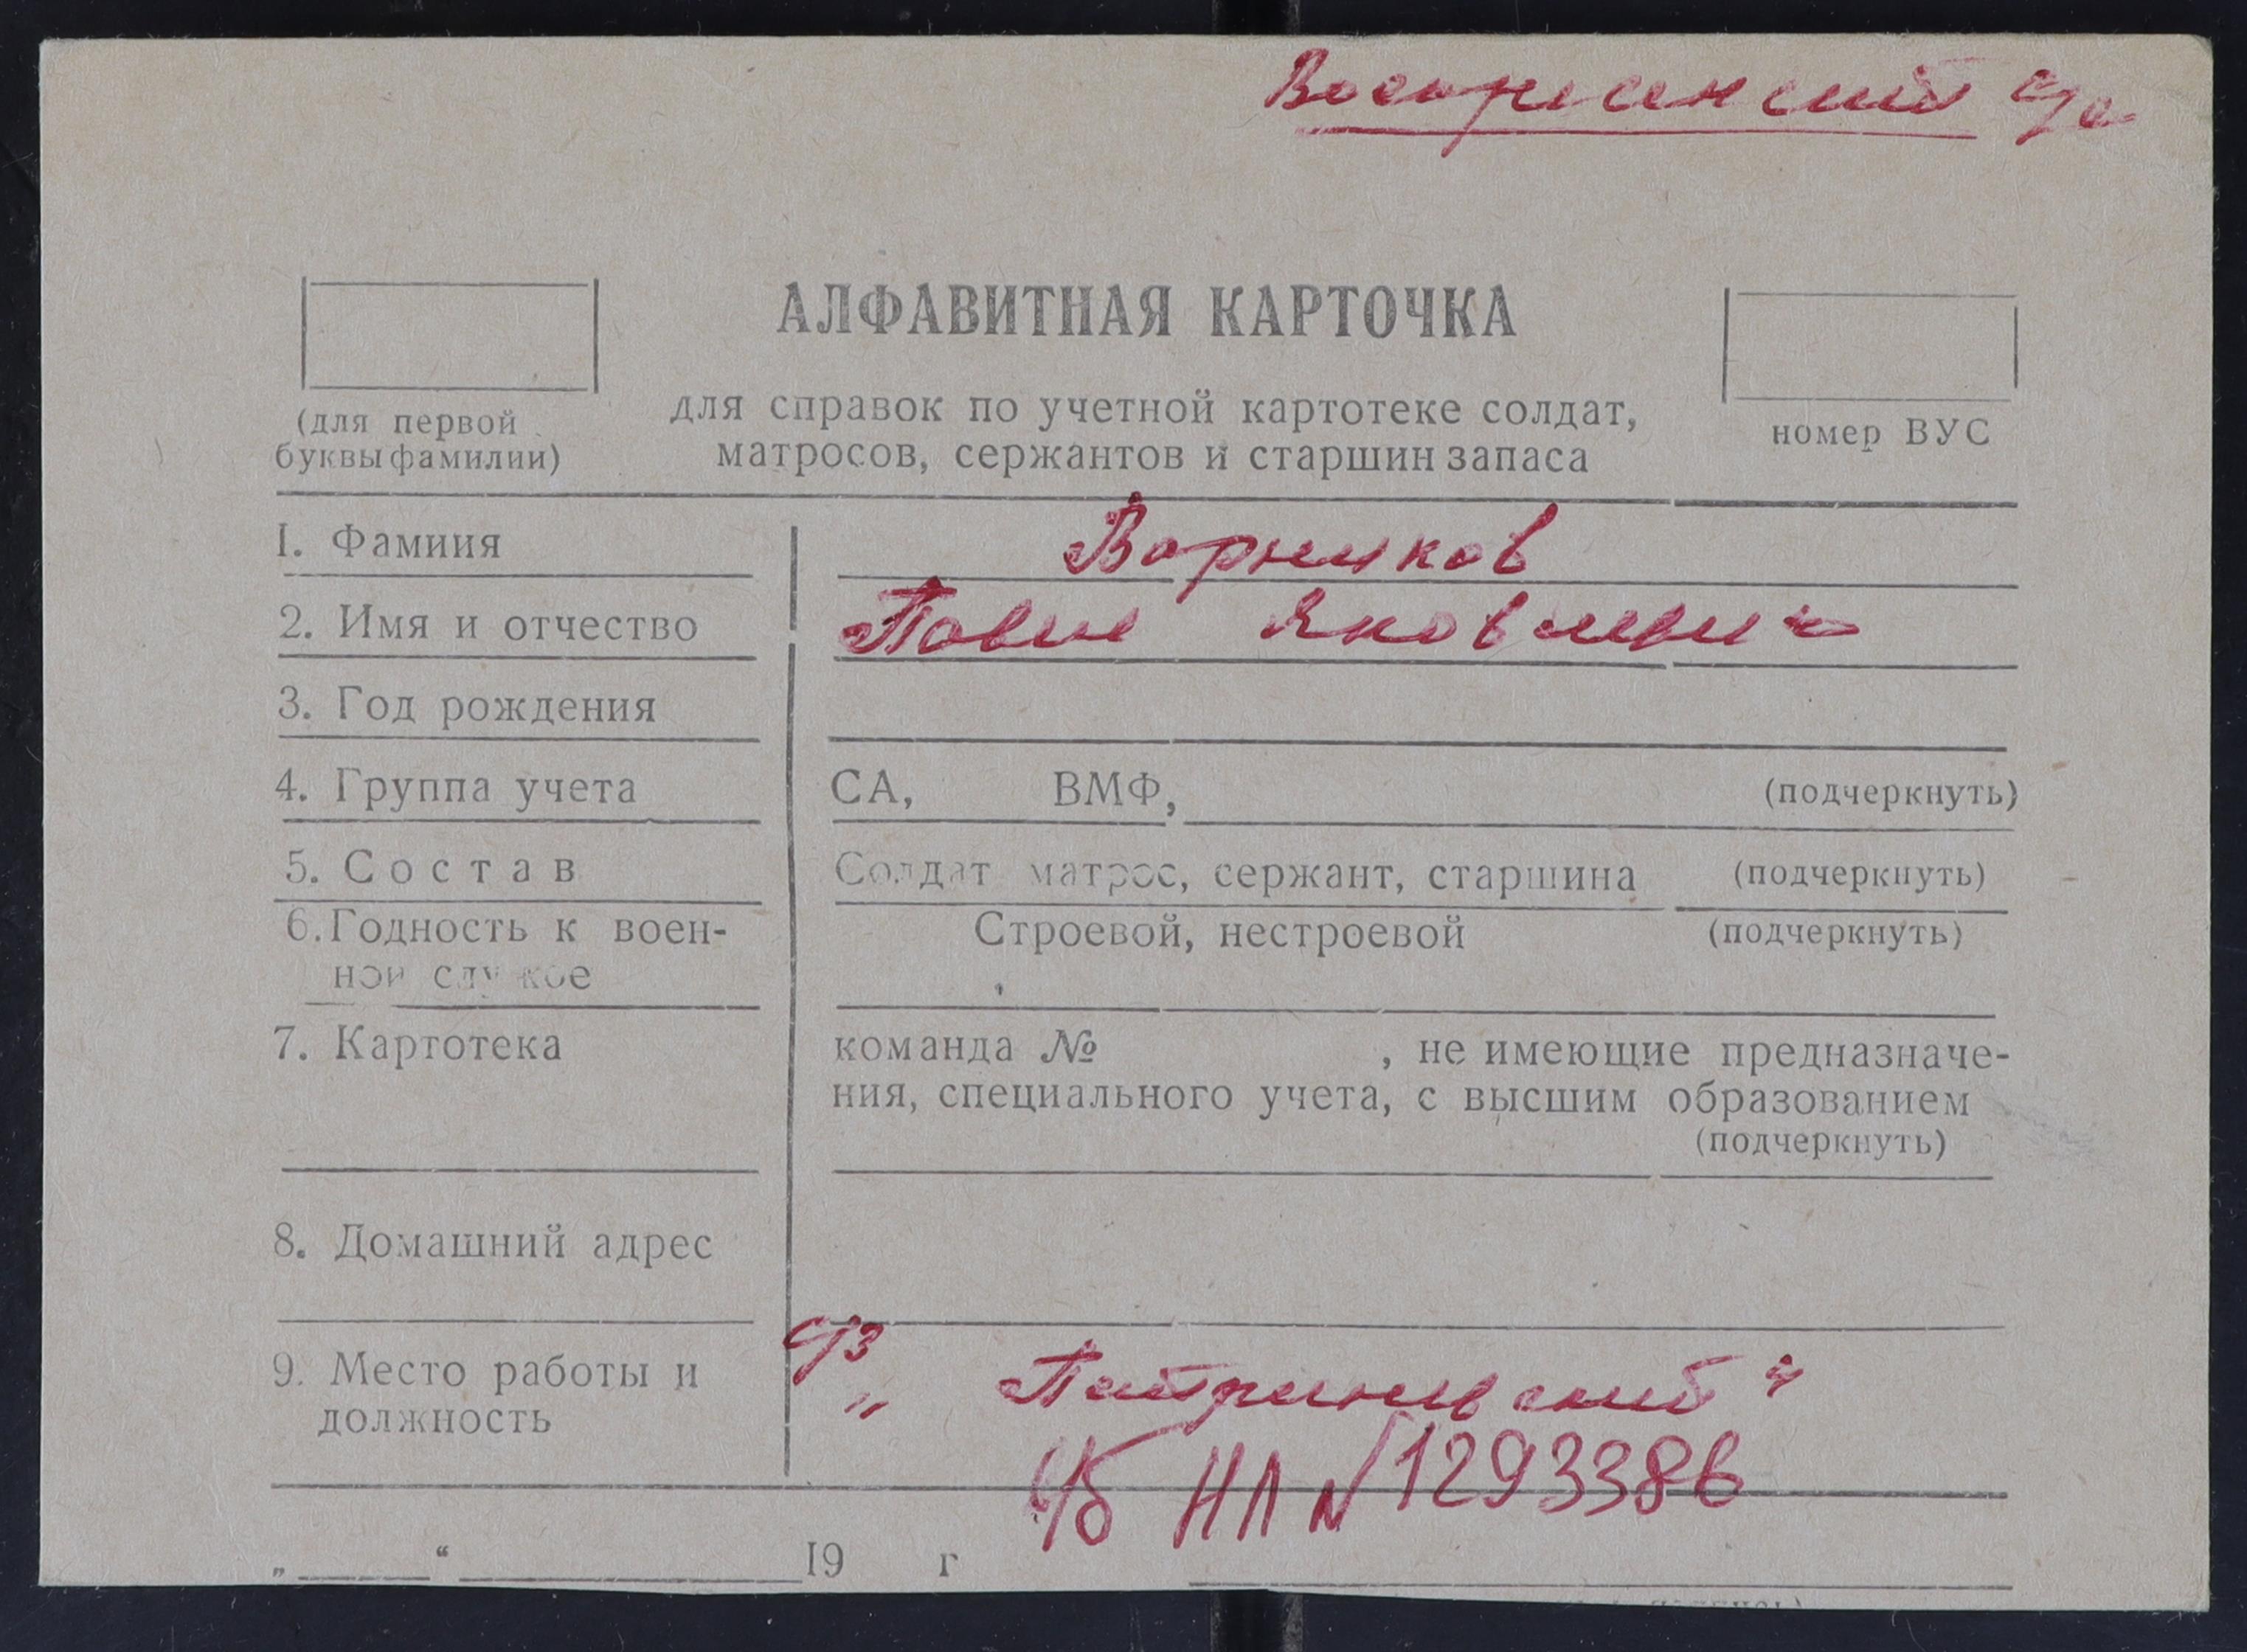 Воскресенский с/с
АЛФАВИТНАЯ КАРТОЧКА
(для первой
буквы фамилии)
для справок по учетной картотеке солдат,
матросов, сержантов и старшин запаса
номер ВУС
I. Фамииия
Варников
2. Имя и отчество
Павел Яковлевич
3. Год рождения
4. Группа учета
СА, ВМФ, (подчеркнуть)
5. Состав
Солдат матрос, сержант, старшина (подчеркнуть)
6. Годность к воен-
ной службе
Строевой, нестроевой (подчеркнуть)
7. Картотека
команда № , не имеющие предназначе-
ния, специального учета, с высшим образованием
(подчеркнуть)
8. Домашний адрес
9. Место работы и
должность
"
уб НЛ № 1293386
„ “ I9 г